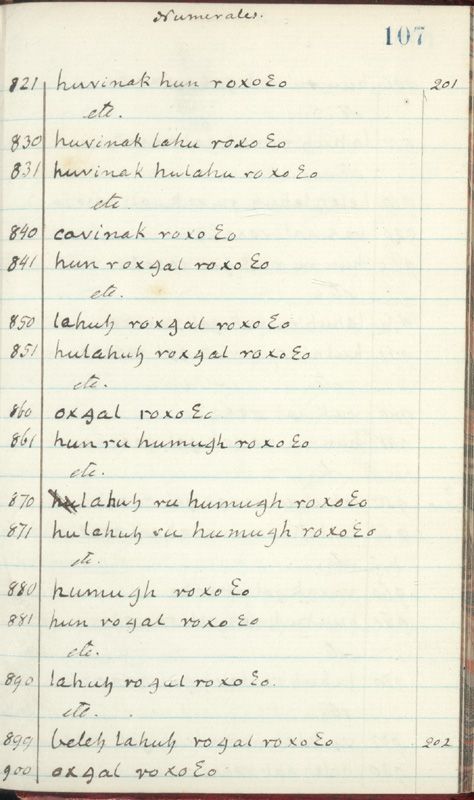 Numerales.
107
821 huvinak hun roxoƐo 201
etc.
830 huvinak lahu roxoƐo
831 huvinak hulahu roxoƐo
etc
840 cavinak roxoƐo
841 hun roxgal roxoƐo
etc.
850 lahuh roxgal roxoƐo
851 hulahuh roxgal roxoƐo
etc.
860 oxgal roxoƐo
861 hun ru humugh roxoƐo
etc.
870 lahuh ru humugh roxoƐo
871 hulahuh ru humugh roxoƐo
etc.
880 humugh roxoƐo
881 hun rogal roxoƐo
etc.
890 lahuh rogal roxoƐo.
etc.
899 beleh lahuh rogal roxoƐo 202
900 oxgal roxoƐo